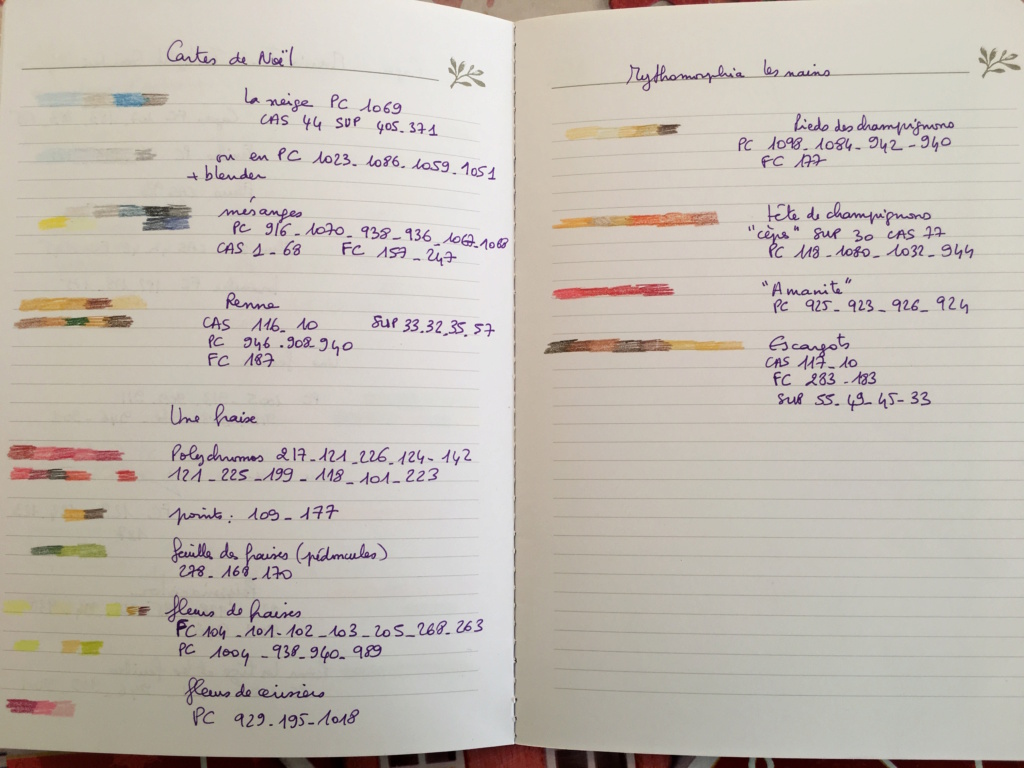 Cartes de Noël
La neige PC 1069
CAS 44 SUP 405-371
ou en PC 1023_1086_1059_1051
+ blender
mésanges
PC 916_1070_938_936_1067-1068
CAS 1_68 FC 157_247
Renne
CAS 116_10 SUP 33.32.35.57
PC 946.908-940
FC 187
Une fraise
Polychromos 217_121_226_124-142
121_225_199_118_101_223
points : 109_177
feuilles des fraises (pédoncules)
278_168_170
fleurs de fraises
FC 104_101-102_103_205_268_263
PC 1004_938_940_989
fleurs de cerisiers
PC 929-195-1018
Mythomorphia les nains
Pieds des champignons
PC 1098_1084_942_940
FC 177
tête de champignons
"cèpes" SUP 30 CAS 77
PC 118_1080_1032_944
"Amanite"
PC 925_923_926_924
Escargots
CAS 117_10
FC 283_183
SUP 55_49_45-33